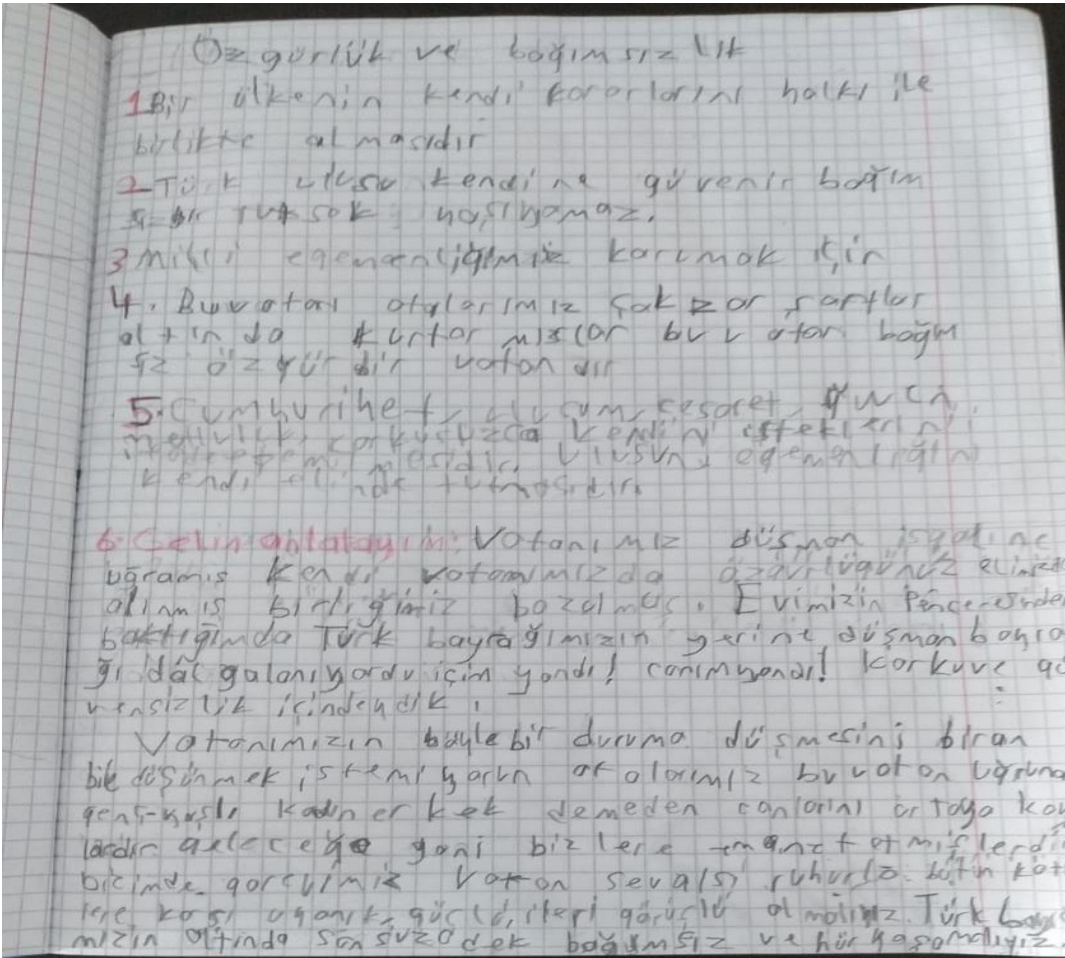 Özgürlük ve bağımsızlık
1 Bir ülkenin kendi kararlarını halkı ile
birlikte almasıdır
2 Türk ulusu kendine güvenir bağım
tutsak yaşıyamaz.
3 Milli egemenliğimiz korumak için
4. Bu vatanı atalarımız çok zor şartlar
altında kurtarmışlar bu vatan bağım
sz özgür bir vatandır
5. Cumhurihet, ulusum, cesaret, gücü,
korkusuzca kendini istekleri
Ulusun, egemenliğini
kendi elinde tutmasıdır.
6. Gelin anlatayım: Vatanımız düşman işgaline
uğramış kendi vatanımızda özgürlüğünüz elimizde
alınmış birliğimiz bozulmuş. Evimizin Penceresinde
baktığımda Türk bayrağımızın yerine düşman bayra
ğı dalgalanıyordu içim yandı! canım yandı! korku ve gü
vensizlik içindeydik.
Vatanımızın böyle bir duruma düşmesini biran
bile düşünmek istemiyorun atalarımız bu vatan uğruna
genç-yaşlı kadın erkek demeden canlarını ortaya koy
lardır geleceğe yani bizlere emanet etmişlerdi
bizimde görevimiz vatan sevgisi ruhuyla bütün köt
lere karşı uyanık, güçlü, ileri görüşlü olmalıyız. Türk bayra
mızın altında sonsuzadek bağımsız ve hür yaşamalıyız